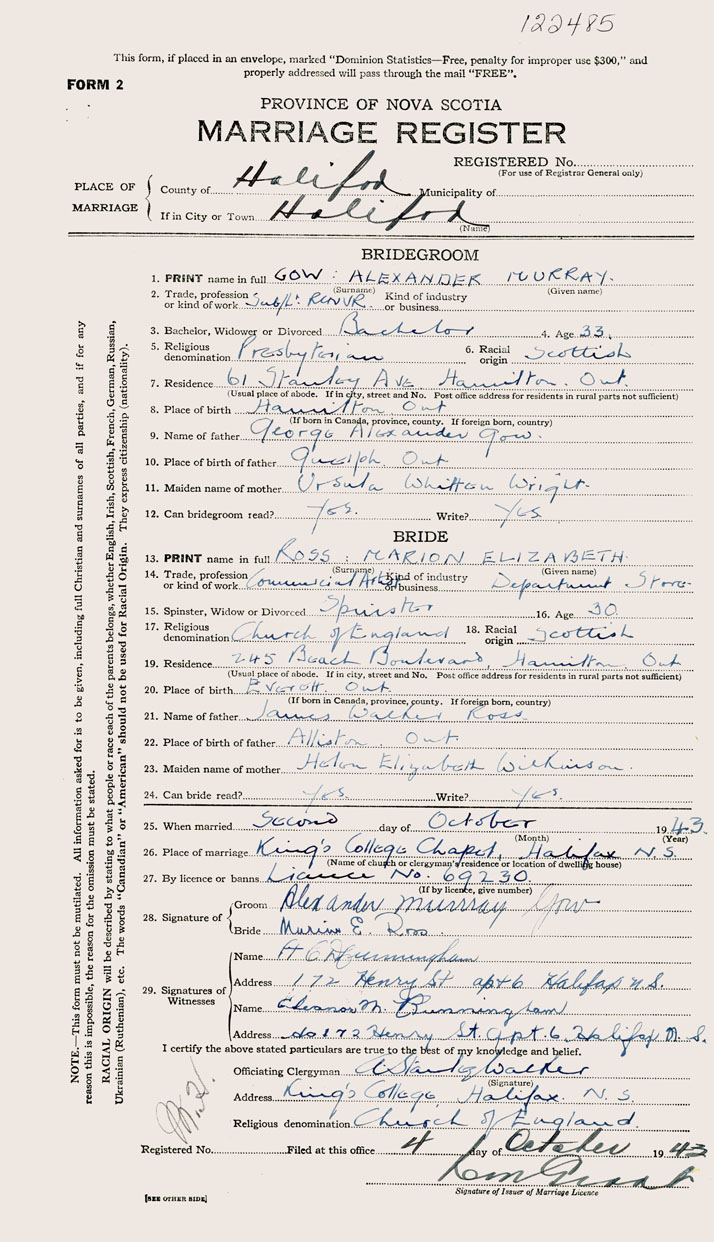 122485
This form, if placed in an envelope, marked "Dominion Statistics—Free, penalty for improper use $300," and
properly addressed will pass through the mail "FREE".
FORM 2
PROVINCE OF NOVA SCOTIA
MARRIAGE REGISTER
REGISTERED No.
(For use of Registrar General only)
PLACE OF MARRIAGE
County of Halifax Municipality of
If in City or Town Halifax
(Name)
BRIDEGROOM
1. PRINT name in full GOW : ALEXANDER MURRAY.
(Surname) (Given name)
2. Trade, profession or kind of work Sub/Lt. RCNVR. Kind of industry or business
3. Bachelor, Widower or Divorced Bachelor 4. Age 33.
5. Religious denomination Presbyterian 6. Racial origin Scottish
7. Residence 61 Stanley Ave, Hamilton. Ont.
(Usual place of abode. If in city, street and No. Post office address for residents in rural parts not sufficient)
8. Place of birth Hamilton Ont
(If born in Canada, province, county. If foreign born, country)
9. Name of father George Alexander Gow.
10. Place of birth of father Guelph. Ont
11. Maiden name of mother Ursula Whitten Wright.
12. Can bridegroom read? Yes. Write? Yes
BRIDE
13. PRINT name in full ROSS : MARION ELIZABETH
(Surname) (Given name)
14. Trade, profession or kind of work Commercial Artist Kind of industry or business Department Store
15. Spinster, Widow or Divorced Spinster 16. Age 30.
17. Religious denomination Church of England 18. Racial origin Scottish
19. Residence 245 Beach Boulevard, Hamilton. Ont
(Usual place of abode. If in city, street and No. Post office address for residents in rural parts not sufficient)
20. Place of birth Everett. Ont
(If born in Canada, province, county. If foreign born, country)
21. Name of father James Walker Ross
22. Place of birth of father Alliston. Ont
23. Maiden name of mother Helen Elizabeth Wilkinson.
24. Can bride read? Yes. Write? Yes.
25. When married Second day of October 1943.
(Month) (Year)
26. Place of marriage King's College Chapel, Halifax N.S.
(Name of church or clergyman's residence or location of dwelling house)
27. By licence or banns Licence No. 69230.
(If by licence, give number)
28. Signature of
Groom Alexander Murray Gow
Bride Marion E. Ross.
29. Signatures of Witnesses
Name
Address 172 Henry St apt 6 Halifax N.S.
Name Eleanor M.
Address do 172 Henry St. Apt. 6, Halifax N.S.
I certify the above stated particulars are true to the best of my knowledge and belief.
Officiating Clergyman A Stanley Walker
(Signature)
Address King's College Halifax. N.S.
Religious denomination Church of England.
Registered No. Filed at this office 4 day of October 1943
Signature of Issuer of Marriage Licence
[SEE OTHER SIDE]
NOTE.—This form must not be mutilated. All information asked for is to be given, including full Christian and surnames of all parties, and if for any
reason this is impossible, the reason for the omission must be stated.
RACIAL ORIGIN will be described by stating to what people or race each of the parents belongs, whether English, Irish, Scottish, French, German, Russian,
Ukrainian (Ruthenian), etc. The words "Canadian" or "American" should not be used for Racial Origin. They express citizenship (nationality).